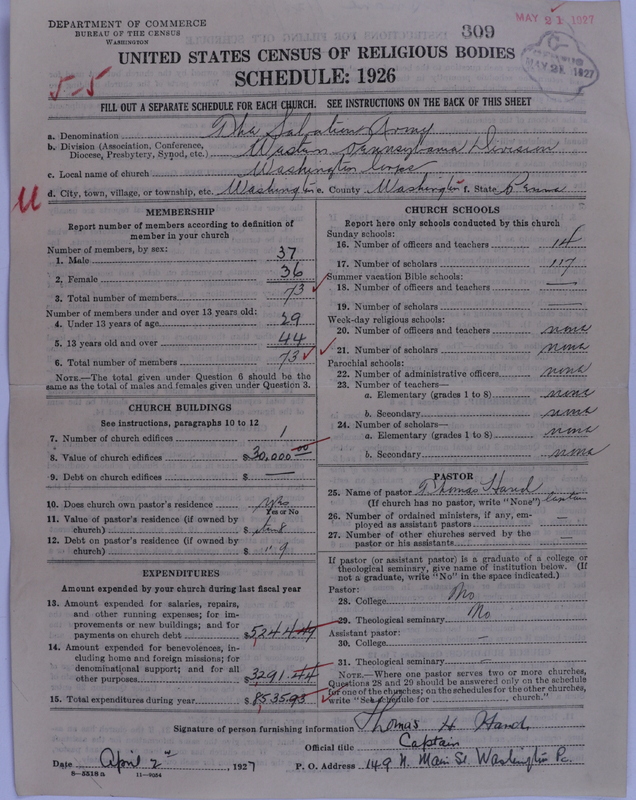 DEPARTMENT OF COMMERCE
BUREAU OF THE CENSUS
WASHINGTON
309
MAY 21 1927
MAY 21 1927
UNITED STATES CENSUS OF RELIGIOUS BODIES
SCHEDULE: 1926
5-5
FILL OUT A SEPARATE SCHEDULE FOR EACH CHURCH. SEE INSTRUCTIONS ON THE BACK OF THIS SHEET
a. Denomination The Salvation Army
b. Division (Association, Conference, Diocese, Presbytery, Synod, etc.) Western Pennsylvania Division
c. Local name of church Washington Corps
d. City, town, village, or township, etc. Washington e. County Washington f. State Penna
MEMBERSHIP
Report number of members according to definition of
member in your church
Number of members, by sex:
1. Male 37
2. Female 36
3. Total number of members 73
Number of members under and over 13 years old:
4. Under 13 years of age 29
5. 13 years old and over 44
6. Total number of members 73
NOTE.—The total given under Question 6 should be the
same as the total of males and females given under Question 3.
CHURCH BUILDINGS
See instructions, paragraphs 10 to 12
7. Number of church edifices 1
8. Value of church edifices $30,000.00
9. Debt on church edifices $ —
10. Does church own pastor's residence
Yes or No
11. Value of pastor's residence (if owned by
church) $
12. Debt on pastor's residence (if owned by
church) $
EXPENDITURES
Amount expended by your church during last fiscal year
13. Amount expended for salaries, repairs,
and other running expenses; for im-
provements or new buildings; and for
payments on church debt $5244.49
14. Amount expended for benevolences, in-
cluding home and foreign missions; for
denominational support; and for all
other purposes $3291.44
15. Total expenditures during year $8535.93
CHURCH SCHOOLS
Report here only schools conducted by this church
Sunday schools:
16. Number of officers and teachers 14
17. Number of scholars 117
Summer vacation Bible schools:
18. Number of officers and teachers —
19. Number of scholars —
Week-day religious schools:
20. Number of officers and teachers none
21. Number of scholars none
Parochial schools:
22. Number of administrative officers none
23. Number of teachers—
a. Elementary (grades 1 to 8) none
b. Secondary none
24. Number of scholars—
a. Elementary (grades 1 to 8) none
b. Secondary none
PASTOR
25. Name of pastor Thomas Hand
(If church has no pastor, write "None") Captain
26. Number of ordained ministers, if any, em-
ployed as assistant pastors
27. Number of other churches served by the
pastor or his assistants —
If pastor (or assistant pastor) is a graduate of a college or
theological seminary, give name of institution below. (If
not a graduate, write "No" in the space indicated.)
Pastor:
28. College No
29. Theological seminary No
Assistant pastor:
30. College —
31. Theological seminary —
NOTE.—Where one pastor serves two or more churches,
Questions 28 and 29 should be answered only on the schedule
for one of the churches; on the schedules for the other churches,
write "See schedule for ______ church."
Signature of person furnishing information Thomas H. Hand
Official title Captain
Date April 2nd, 1927 P. O. Address 149 N. Main St. Washington Pa.
8—5518a 11—9054